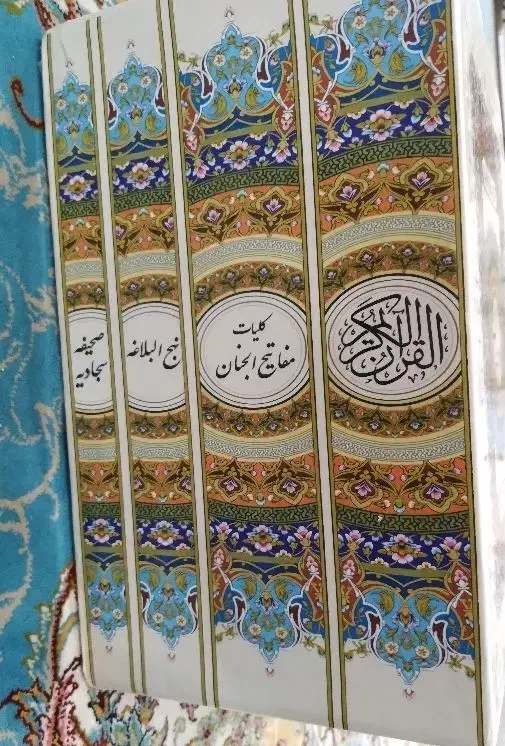 القرآن الكريم
كليات
مفاتيح الجنان
نهج البلاغه
صحيفه
سجاديه